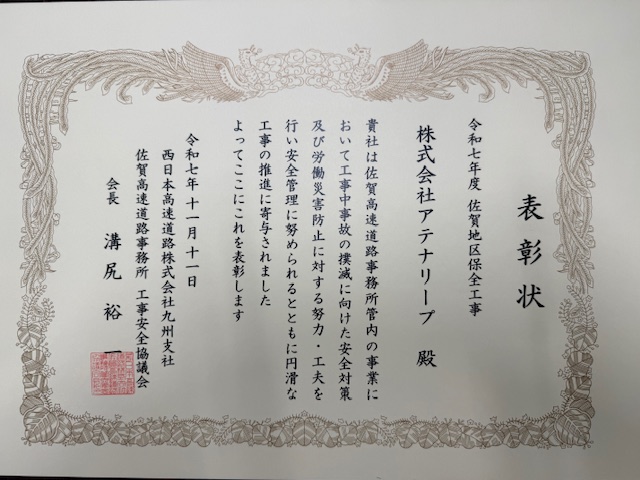 表彰状
令和七年度 佐賀地区保全工事
株式会社アテナリープ 殿
貴社は佐賀高速道路事務所管内の事業に
おいて工事中事故の撲滅に向けた安全対策
及び労働災害防止に対する努力・工夫を
行い安全管理に努められるとともに円滑な
工事の推進に寄与されました
よってここにこれを表彰します
令和七年 十一月 十一日
西日本高速道路株式会社九州支社
佐賀高速道路事務所 工事安全協議会
会長 溝尻 裕一